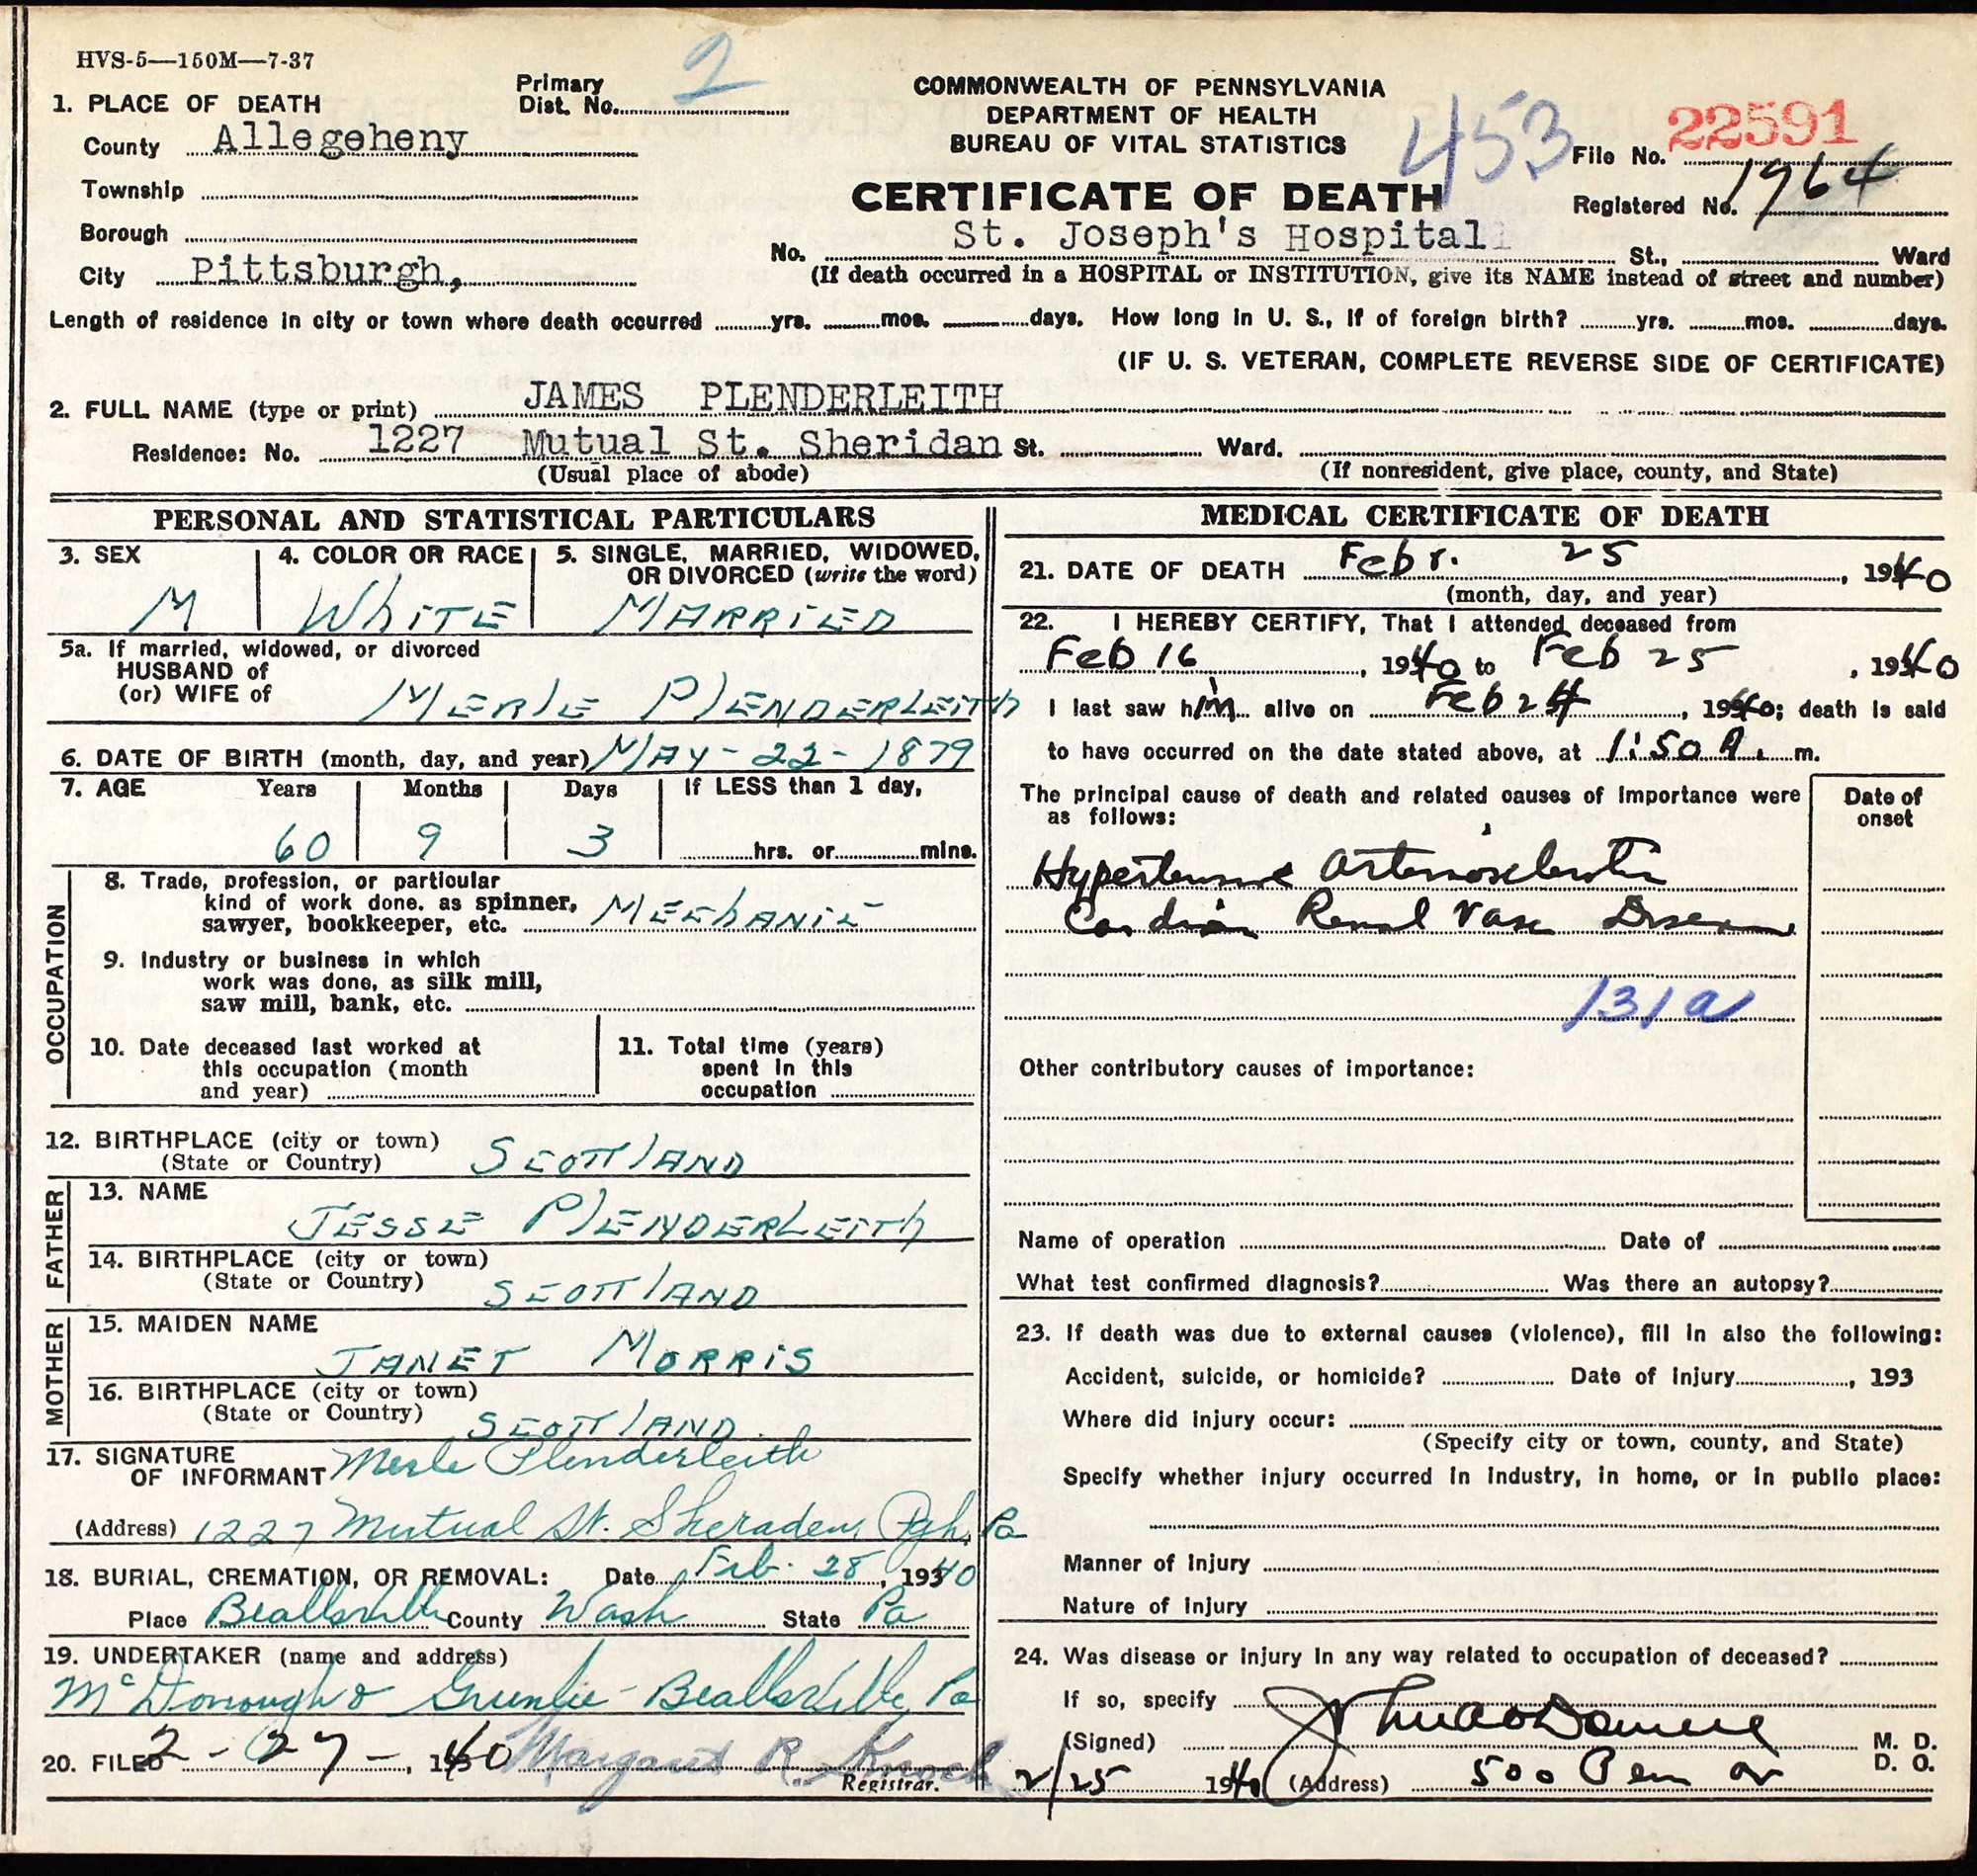 HVS-5—150M—7-37
Primary Dist. No. 2
COMMONWEALTH OF PENNSYLVANIA
DEPARTMENT OF HEALTH
BUREAU OF VITAL STATISTICS
453
File No. 22591
Registered No. 1964
CERTIFICATE OF DEATH
1. PLACE OF DEATH
County Allegeheny
Township
Borough
City Pittsburgh,
No. St. Joseph's Hospital St., Ward
(If death occurred in a HOSPITAL or INSTITUTION, give its NAME instead of street and number)
Length of residence in city or town where death occurred yrs. mos. days. How long in U. S., if of foreign birth? yrs. mos. days.
(IF U. S. VETERAN, COMPLETE REVERSE SIDE OF CERTIFICATE)
2. FULL NAME (type or print) JAMES PLENDERLEITH
Residence: No. 1227 Mutual St. Sheridan St. Ward.
(Usual place of abode) (If nonresident, give place, county, and State)
PERSONAL AND STATISTICAL PARTICULARS
3. SEX
M
4. COLOR OR RACE
WhiTE
5. SINGLE, MARRIED, WIDOWED, OR DIVORCED (write the word)
MARRiED
5a. If married, widowed, or divorced
HUSBAND of
(or) WIFE of MERlE PlENDERLEiTh
6. DATE OF BIRTH (month, day, and year) MAY-22-1879
7. AGE Years Months Days If LESS than 1 day,
60 9 3 hrs. or mins.
OCCUPATION
8. Trade, profession, or particular
kind of work done, as spinner,
sawyer, bookkeeper, etc. MEchANic
9. Industry or business in which
work was done, as silk mill,
saw mill, bank, etc.
10. Date deceased last worked at
this occupation (month
and year)
11. Total time (years)
spent in this
occupation
12. BIRTHPLACE (city or town)
(State or Country) ScoTTlAND
FATHER
13. NAME
JESSE PlENDERLEiTh
14. BIRTHPLACE (city or town)
(State or Country) ScoTTlAND
MOTHER
15. MAIDEN NAME
JANET MORRiS
16. BIRTHPLACE (city or town)
(State or Country) ScoTTlAND
17. SIGNATURE
OF INFORMANT Merle Plenderleith
(Address) 1227 Mutual St. Sheraden, Pgh, Pa
18. BURIAL, CREMATION, OR REMOVAL: Date Feb. 28, 19340
Place Beallsville County Wash State Pa
19. UNDERTAKER (name and address)
McDonough & Greenlee - Beallsville, Pa
20. FILED 2-27-, 1940 Margaret R. Knoch
Registrar.
MEDICAL CERTIFICATE OF DEATH
21. DATE OF DEATH Febr. 25, 1940
(month, day, and year)
22. I HEREBY CERTIFY, That I attended deceased from
Feb 16, 1940 to Feb 25, 1940
I last saw him alive on Feb 24, 1940; death is said
to have occurred on the date stated above, at 1:50 A. m.
The principal cause of death and related causes of importance were
as follows:
Date of onset
Hypertensive Arteriosclerotic
Cardio Renal Vasc Disease
131a
Other contributory causes of importance:
Name of operation Date of
What test confirmed diagnosis? Was there an autopsy?
23. If death was due to external causes (violence), fill in also the following:
Accident, suicide, or homicide? Date of injury, 193
Where did injury occur:
(Specify city or town, county, and State)
Specify whether injury occurred in industry, in home, or in public place:
Manner of injury
Nature of injury
24. Was disease or injury in any way related to occupation of deceased?
If so, specify
(Signed) M. D.
D. O.
2/25 1940 (Address) 500 Penn av